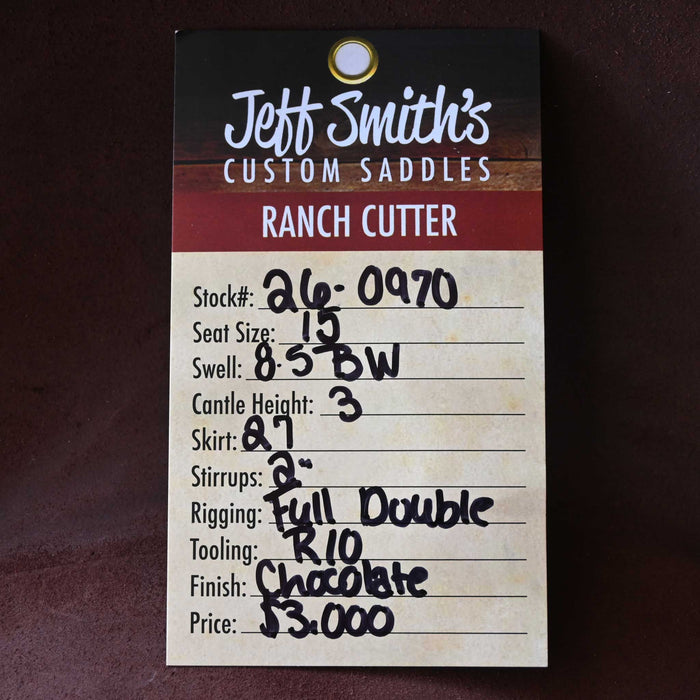 Jeff Smith's
CUSTOM SADDLES
RANCH CUTTER
Stock#: 26-0970
Seat Size: 15
Swell: 8.5 BW
Cantle Height: 3
Skirt: 27
Stirrups: 2"
Rigging: Full Double
Tooling: R10
Finish: Chocolate
Price: $3.000